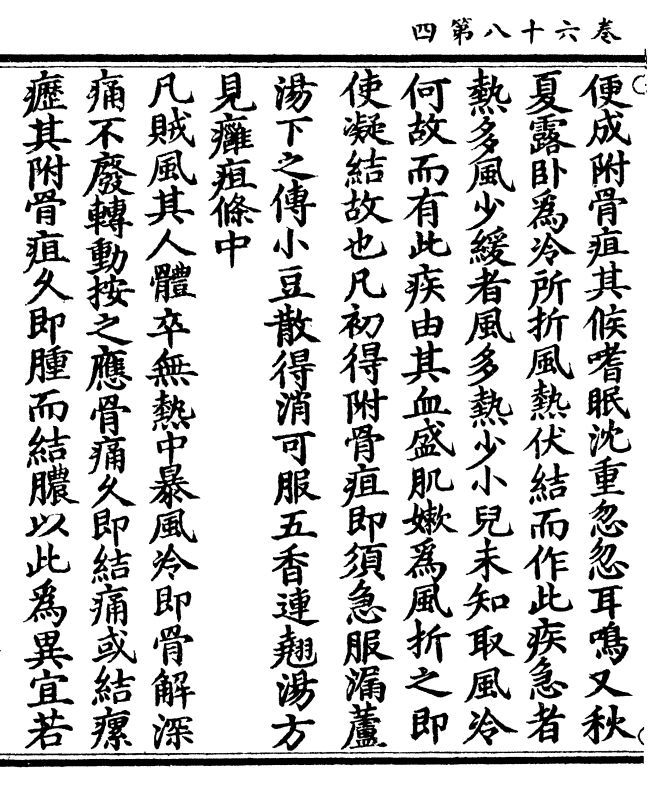 卷六十八第四
便成附骨疽其候嗜眠沈重忽忽耳鳴又秋
夏露卧爲冷所折風熱伏結而作此疾急者
熱多風少緩者風多熱少小兒未知取風冷
何故而有此疾由其血盛肌嫩爲風折之即
使凝結故也凡初得附骨疽即須急服漏蘆
湯下之傳小豆散得消可服五香連翹湯方
見癰疽條中
凡賊風其人體卒無熱中暴風冷即骨解深
痛不廢轉動按之應骨痛久即結痛或結瘰
癧其附骨疽久即腫而結膿以此爲異宜若